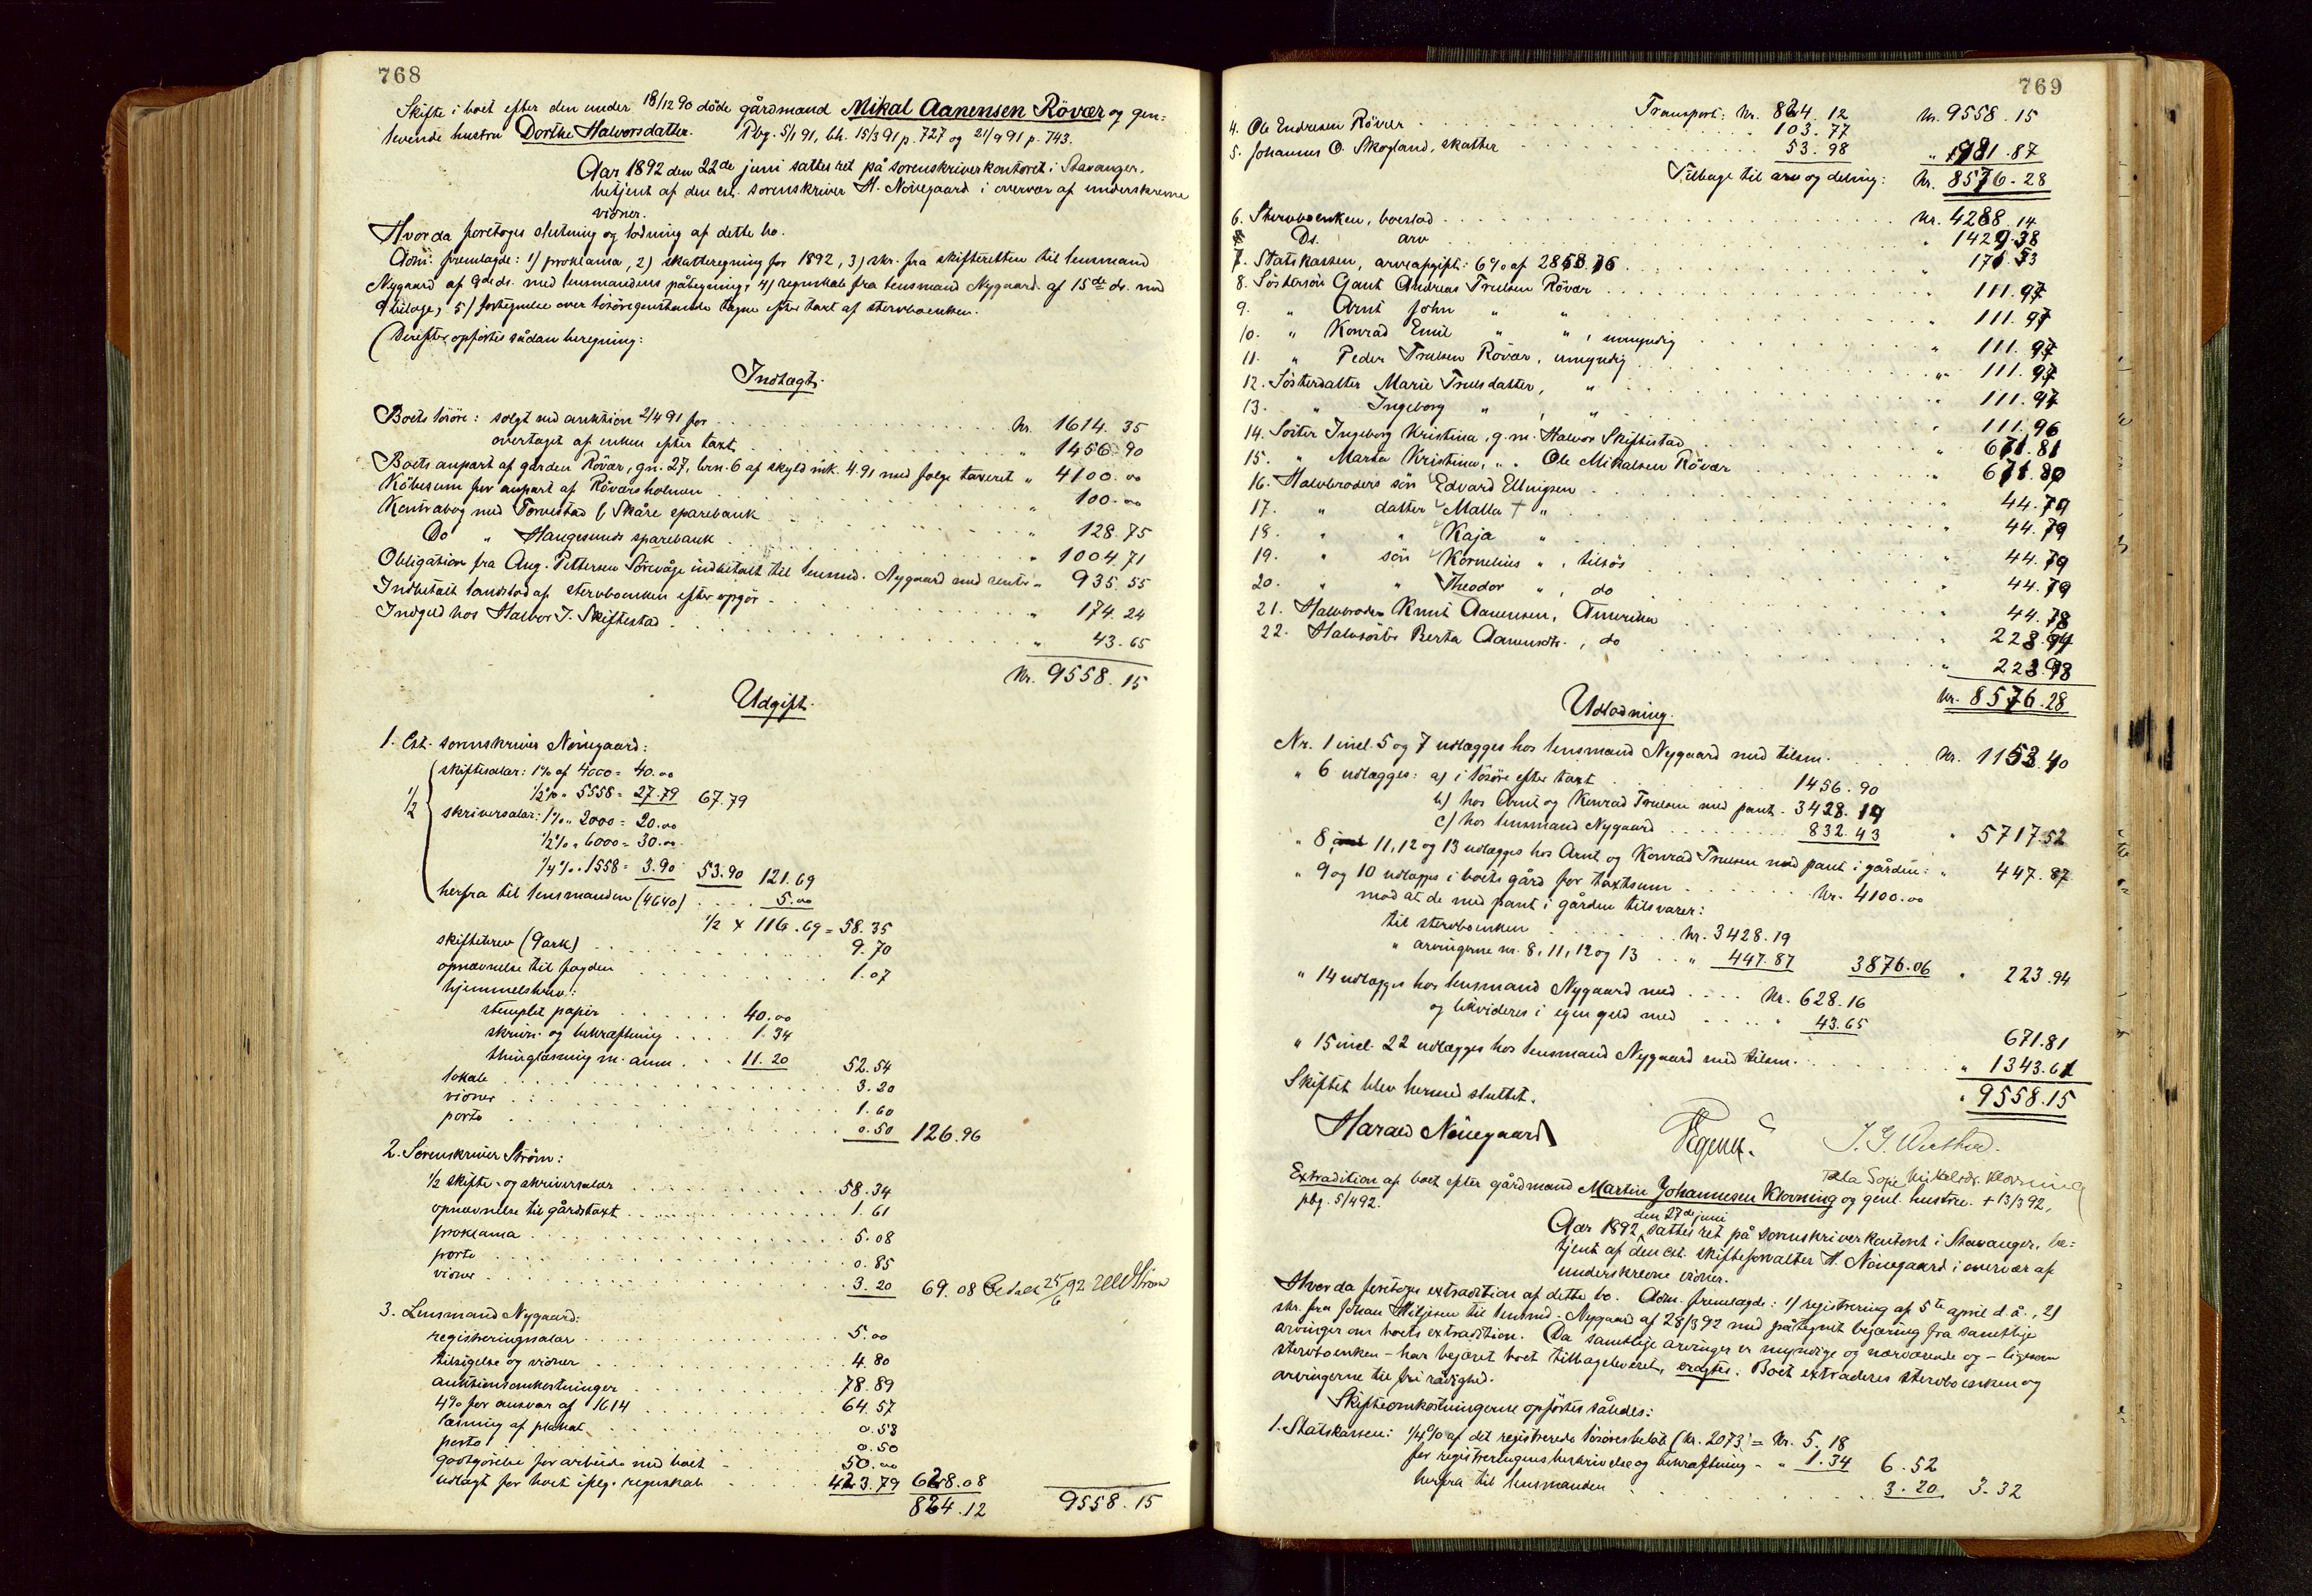 768
Skifte i boet efter den under 18/12 90 döde gårdmand Mikal Aanensen Rövær og gen=
levende hustru Dorthe Halvorsdatter. Pbg. 5/1 91, bh. 15/3 91 p. 727 og 21/9 91 p. 743.
Aar 1892 den 22de juni sattes ret på sorenskriverkontoret i Stavanger,
betjent af den cst. sorenskriver H. Nönegaard i overvær af underskrevne
vidner.
Hvorda foretoges slutning og lodning af dette bo.
Adm. fremlagde: 1) proklama, 2) skatteregning for 1892, 3) skr. fra skifteretten til lensmand
Nygaard af 9de ds. med lensmandens påtegning, 4) regnskab fra lensmand Nygaard af 15de ds. med
9 bilage, 5) fortegnelse over lösöregjenstande tagne efter taxt af stervboenken.
Derefter opförtes sådan beregning:
Indtægt.
Boets lösöre: solgt ved auktion 2/4 91 for . . . kr. 1614. 35
overtaget af enken efter taxt . . . " 1456. 90
Boets anpart af gården Rövær, gn. 27, brn. 6 af skyld mk. 4.91 med fölge taxeret " 4100. 00
Köbesum for anpart af Röværsholmen . . . " 100. 00
Kontrabog med Torvestad & Skåre sparebank . . . " 128. 75
Do " Haugesunds sparebank . . . " 1004. 71
Obligation fra Aug. Pettersen Sörevåge indbetalt til lensmd. Nygaard med renter " 935. 55
Indbetalt landslod af stervboenken efter opgör . . . " 174. 24
Indgjeld hos Halvor J. Skiftestad . . . " 43. 65
Kr. 9558. 15
Udgift.
1. Cst. sorenskriver Nönegaard:
1/2 skiftesalær: 1% af 4000 = 40.00
1/2% " 5558 = 27.79 67.79
skriversalær: 1% " 2000 = 20.00
1/2% " 6000 = 30.00
1/4% " 1558 = 3.90 53.90 121.69
herfra til lensmanden (4640) . . . 5.00
1/2 x 116.69 = 58.35
skiftebrev (9 ark) . . . 9.70
opnævnelse til fogden . . . 1.07
hjemmelsbrev:
stemplet papir . . . 40.00
skrivn. og bekræftning . . . 1.34
thinglæsning m. anm. . . . 11.20 52.54
lokale . . . 3.20
vidner . . . 1.60
porto . . . 0.50 126.96
2. Sorenskriver Ström:
1/2 skifte- og skriversalær . . . 58.34
opnævnelse til gårdstaxt . . . 1.61
proklama . . . 5.08
porto . . . 0.85
vidner . . . 3.20 69.08 Betalt 25/6 92 Ström
3. Lensmand Nygaard:
registreringssalær . . . 5.00
tilsigelse og vidner . . . 4.80
auktionsomkostninger . . . 78.89
4% for ansvar af 1614 . . . 64.57
læsning af plakat . . . 0.53
porto . . . 0.50
godtgörelse for arbeide med boet . . . 50.00
udlagt for boet ifölg. regnskab . . . 423.79 628.08
824.12 9558.15
769
Transport: kr. 824.12 kr. 9558.15
4. Ole Endresen Rövær . . . 103.77
5. Johannes O. Skogland, skatter . . . 53.98 " 981.87
Tilbage til arv og deling: kr. 8576.28
6. Stervboenken, boeslod . . . kr. 4288.14
Ds. arv . . . " 1429.38
7. Statskassen, arveafgift: 6% af 2858.76 . . . " 171.53
8. Söstersön Gaut Andreas Trulsen Rövær . . . 111.97
9. " Arnt John " " . . . 111.97
10. " Konrad Emil " ", umyndig . . . 111.97
11. " Peder Trulsen Rövær, umyndig . . . 111.97
12. Sösterdatter Marie Trulsdatter, " . . . 111.97
13. " Ingeborg " , " . . . 111.96
14. Söster Ingeborg Kristina, g.m. Halvor Skiftestad . . . 671.81
15. " Marta Kristina, " " Ole Mikalsen Rövær . . . 671.80
16. Halvbroders sön Edvard Ellingsen . . . 44.79
17. " datter Malla † " . . . 44.79
18. " " Kaja " . . . 44.79
19. " sön Kornelius ", tilsös . . . 44.79
20. " " Theodor ", do . . . 44.78
21. Halvbroder Knut Aanensen, Amerika . . . 223.94
22. Halvsöster Berta Aanensdtr., do . . . 223.93
kr. 8576.28
Udlodning.
Nr. 1 incl. 5 og 7 udlægges hos lensmand Nygaard med tilsm. . . . kr. 1153.40
" 6 udlægges: a) i lösöre efter taxt . . . 1456.90
b) hos Arnt og Konrad Trulsen med pant . 3428.19
c) hos lensmand Nygaard . . . 832.43 " 5717.52
" 8, 11, 12 og 13 udlægges hos Arnt og Konrad Trulsen med pant i gården: " 447.87
" 9 og 10 udlægges i boets gård for taxtsum . . . kr. 4100.00
mod at de med pant i gården tilsvarer:
til stervboenken . . . kr. 3428.19
" arvingerne nr. 8, 11, 12 og 13 . . " 447.87 3876.06 " 223.94
" 14 udlægges hos lensmand Nygaard med . . . kr. 628.16
og likvideres i egen gjeld med . . . " 43.65 671.81
" 15 incl. 22 udlægges hos lensmand Nygaard med tilsm. . . . " 1343.61
" 9558.15
Skiftet blev hermed sluttet.
Harald Nönegaard
Extradition af boet efter gårdmand Martin Johannesen Klovning og genl. hustru Mikelsdr. Klovning † 13/3 92,
pbg. 5/4 92.
Aar 1892 den 27de juni sattes ret på sorenskriverkontoret i Stavanger, be=
tjent af den cst. skifteforvalter H. Nönegaard i overvær af
underskrevne vidner.
Hvorda foretoges extradition af dette bo. Adm. fremlagde: 1) registrering af 5te april d. å., 2)
skr. fra Johan Miljesen til lensmd. Nygaard af 28/3 92 med påtegnet begæring fra samtlige
arvinger om boets extradition. Da samtlige arvinger er myndige og nærværende og – ligesom
stervboenken – har begjæret boet tilbageleveret, eragtes: Boet extraderes stervboenken og
arvingerne til fri rådighed.
Skifteomkostningerne opförtes således:
1. Statskassen: 1/4% af det registrerede lösöresbelöb (kr. 2073) = kr. 5.18
for registreringens beskrivelse og bekræftning - " 1.34 6.52
herfra til lensmanden . . . 3.20 3.32